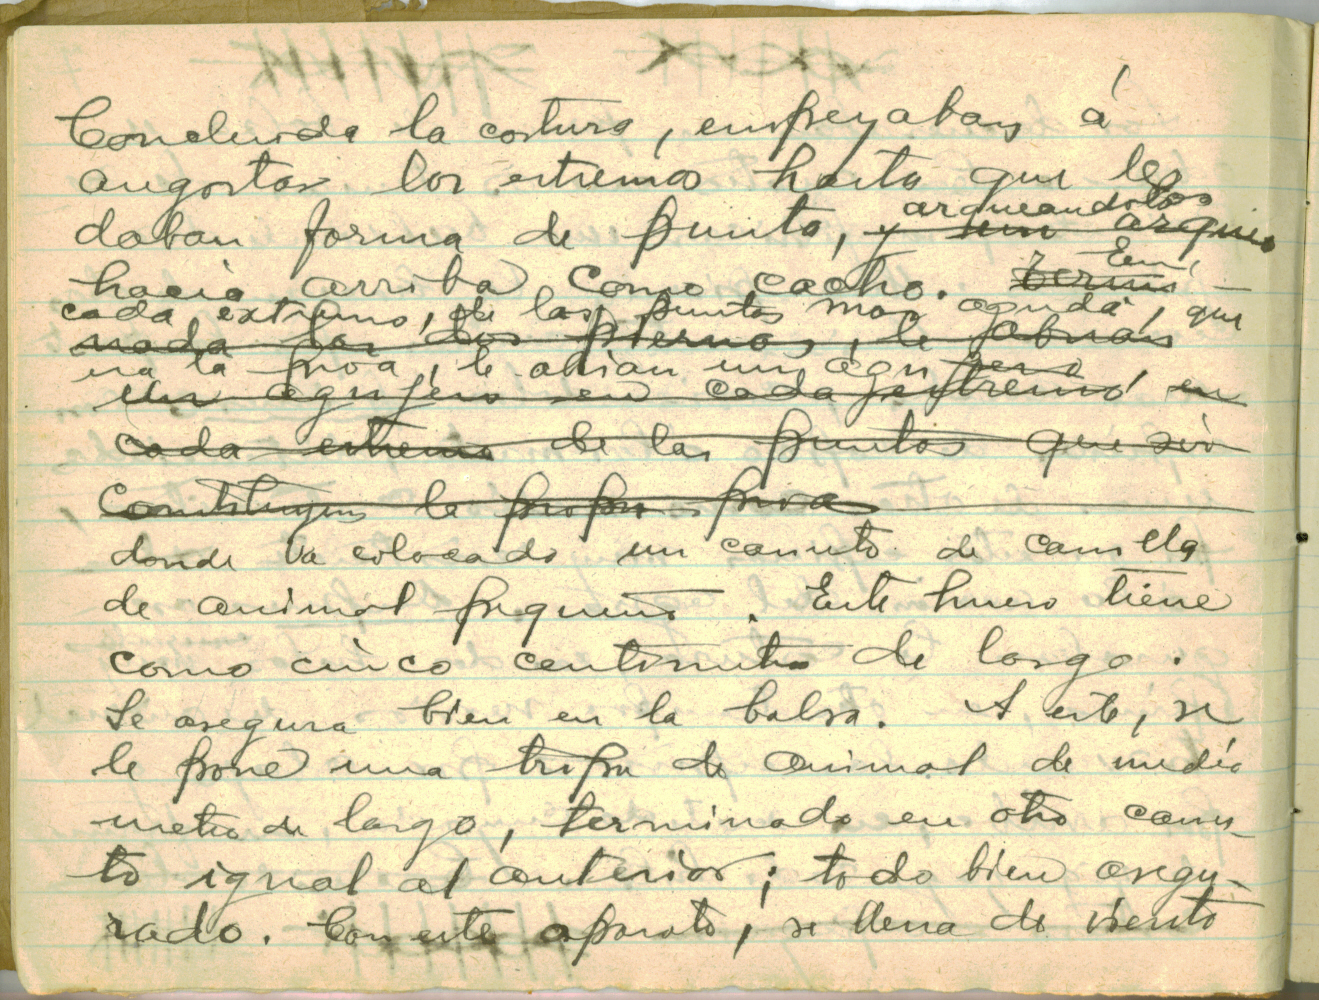 Concluida la costura, empezaban á
angostar los estremos hasta que les
daban forma de punta, arqueandolos
y un arqueo
hacia arriba como cacho. En
cada extremo, de las puntas mas aguda, que
nada las dos piernas, le abrian
era la proa, le abrian un agujero,
un agujero en cada extremo, en
cada estremo de las puntas que
constituyen la propia proa
donde va colocado un canuto de canilla
de animal pequeño. Este hueso tiene
como cinco centimetros de largo.
Se asegura bien en la balsa. A este, se
le pone una tripa de animal de medio
metro de largo, terminado en otro canu-
to igual al anterior; todo bien asegu-
rado. Con este aparato, se llena de viento